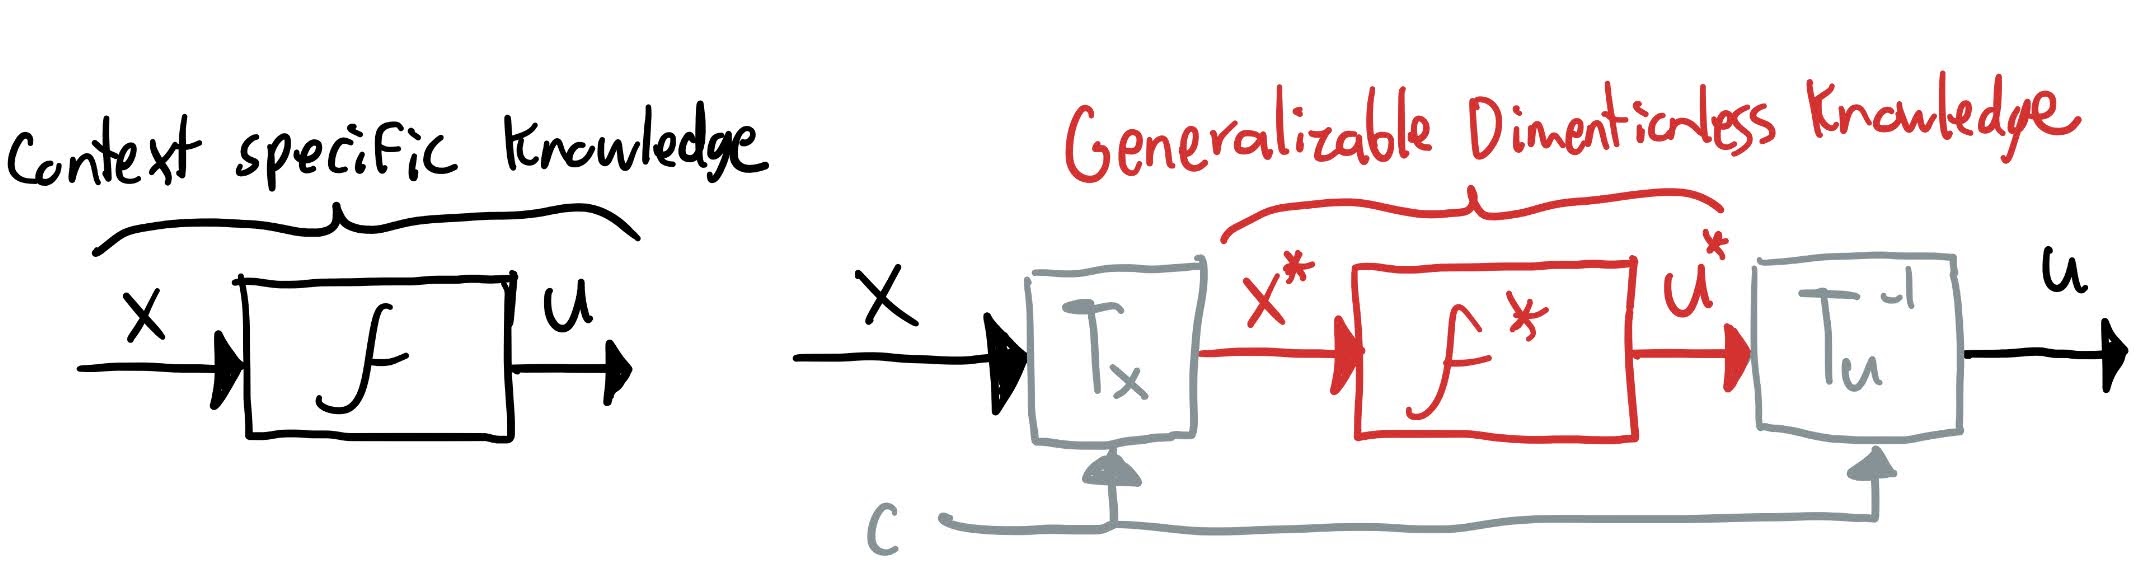 Context specific Knowledge
x
f
u
Generalizable Dimentionless Knowledge
x
Tx
x*
f*
u*
Tu-1
u
c